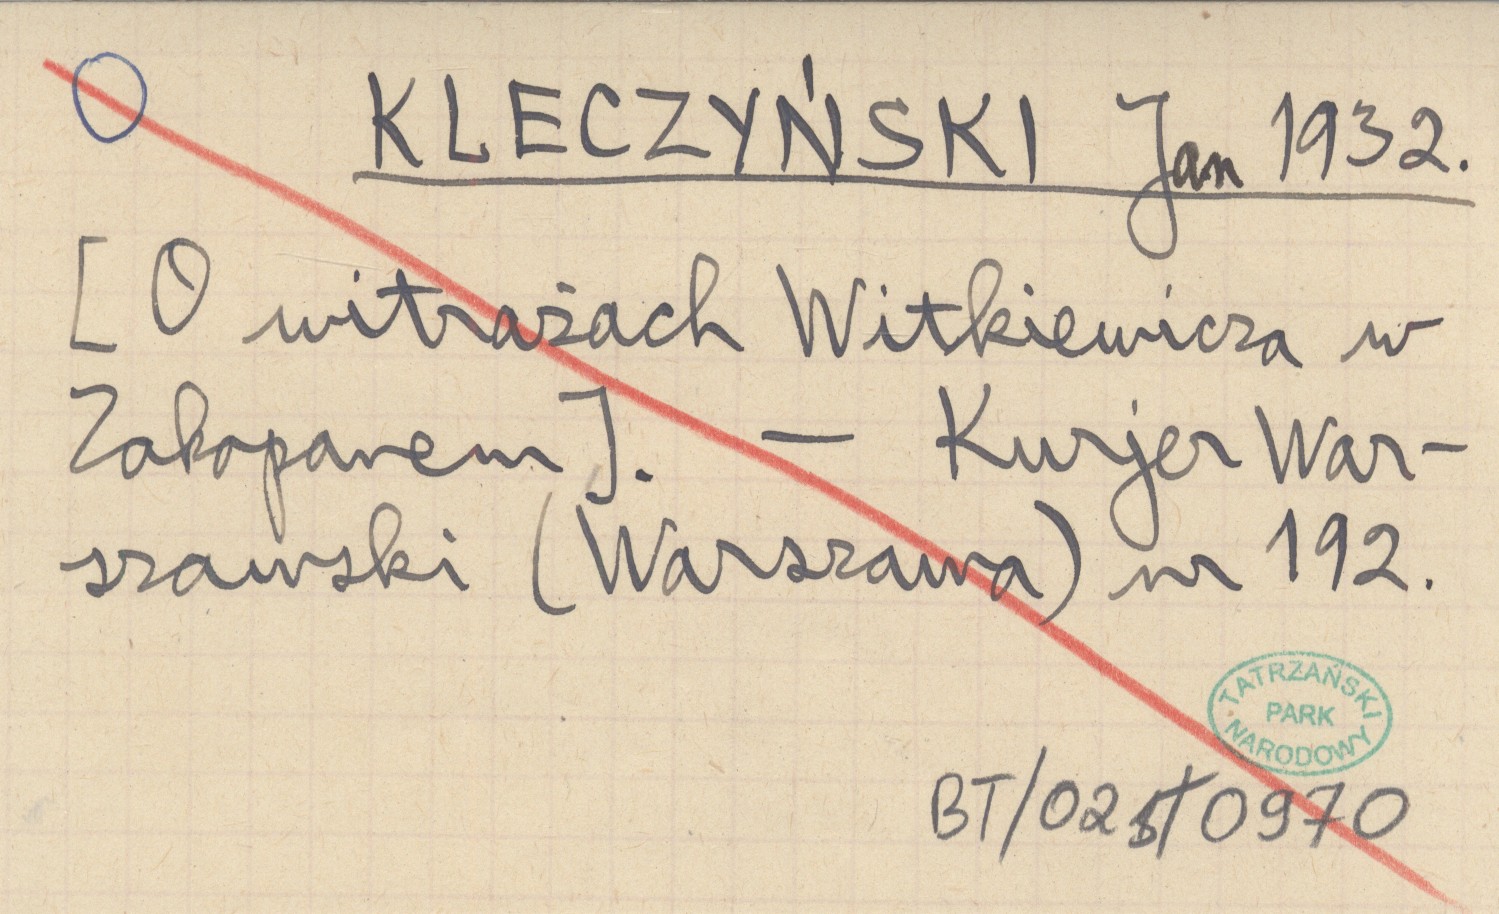 KLECZYŃSKI Jan 1932.
[O witrażach Witkiewicza w
Zakopanem]. — Kurjer War-
szawski (Warszawa) nr 192.
TATRZAŃSKI
PARK
NARODOWY
BT/025/0970